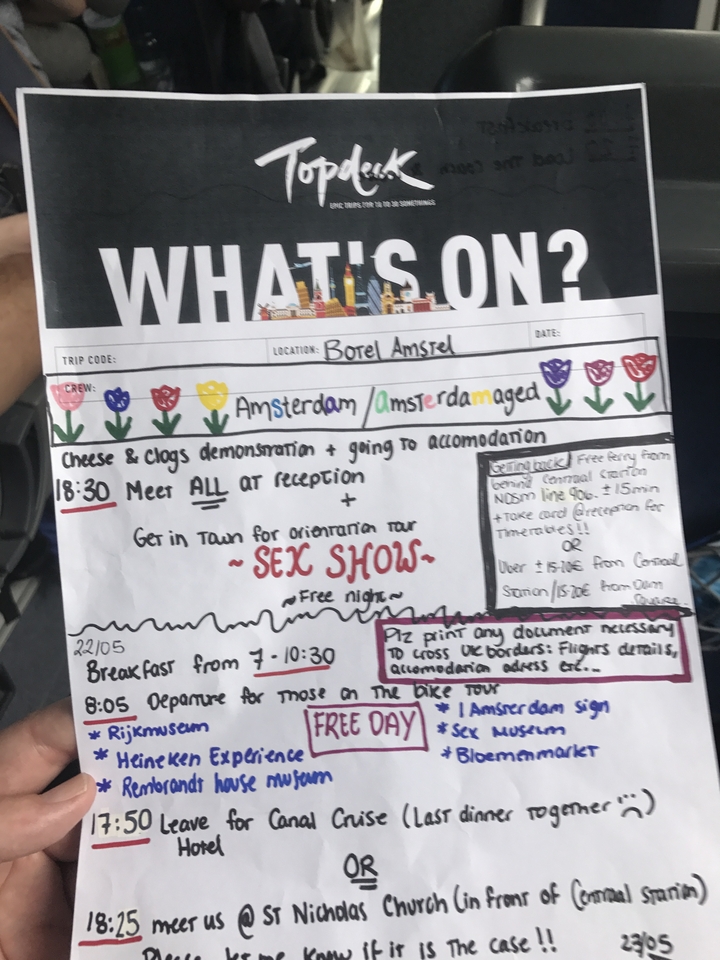 Topdeck
EPIC TRIPS FOR 18 TO 30 SOMETHINGS
WHAT'S ON?
TRIP CODE:
LOCATION: Botel Amstel
DATE:
CREW:
Amsterdam / amsterdamaged
Cheese & clogs demonstration + going to accomodation
18:30 Meet ALL at reception
+
Get in town for orientation tour
~ SEX SHOW ~
~ Free night ~
Getting back/ Free ferry from
behind Centraal Station
NDSM line 906. ± 15 min
+ Take card @reception for
Timetables!!
OR
Uber ± 15-20€ from Central
Station/15-20€ from Dam
Square
22/05
Breakfast from 7 - 10:30
Plz print any document necessary
to cross UK borders: Flights details,
accomodation adress etc...
8:05 Departure for those on the bike tour
* Rijkmuseum
* Heineken Experience
* Rembrandt house museum
FREE DAY
* I Amsterdam sign
* Sex Museum
* Bloemenmarkt
17:50 Leave for Canal Cruise (Last dinner together :( )
Hotel
OR
18:25 meet us @ St Nicholas Church (in front of Central station)
Please let me know if it is the case !!
23/05